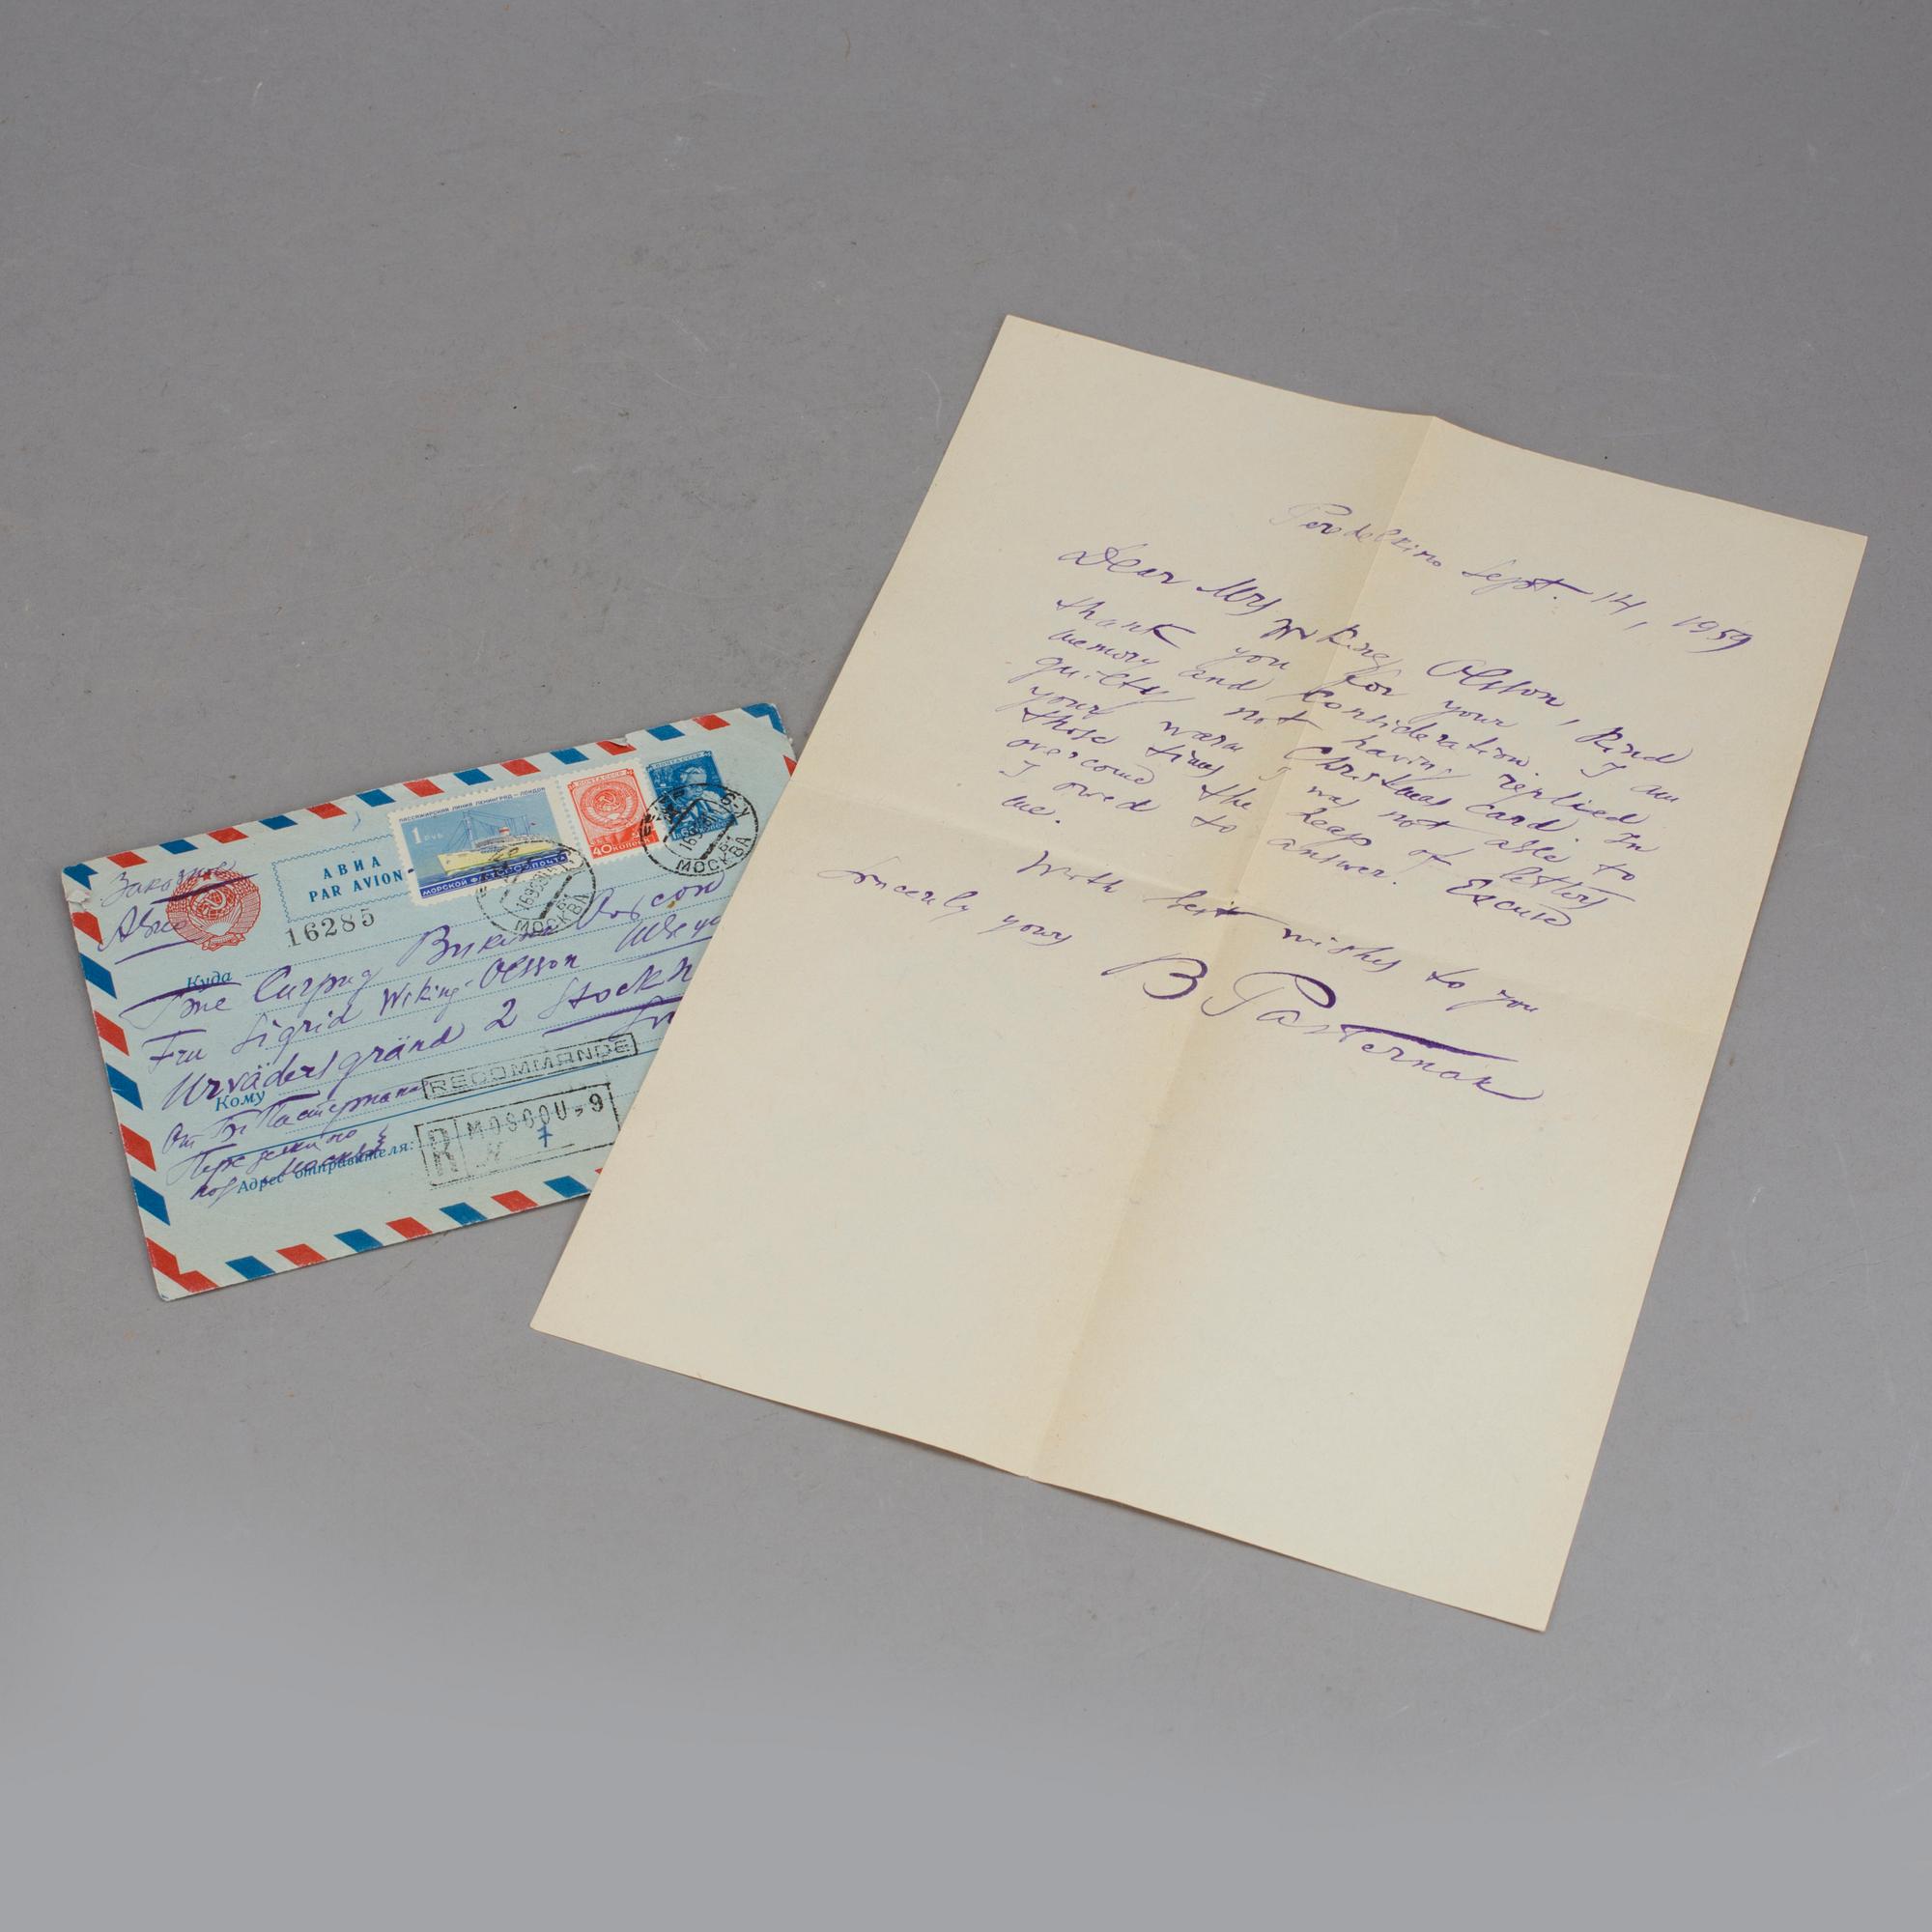 Заказное
Авиа
АВИА
PAR AVION
16285
ПАССАЖИРСКАЯ ЛИНИЯ ЛЕНИНГРАД - ЛОНДОН
1 РУБ
МОРСКОЙ ФЛОТ СССР ПОЧТА
ПОЧТА СССР
40 КОПЕЕК
ПОЧТА СССР
МОСКВА
МОСКВА
Куда
Сигрид Викинг Олссон
Fru Sigrid Wiking-Olsson
Urvädersgränd 2 Stockh
Кому
От Б. Пастернака
Переделкино
под Москвой
Адрес отправителя:
RECOMMANDÉ
R MOSCOU-9
7
Peredelkino Sept. 14, 1959
Dear Mrs Wiking Olsson,
thank you for your kind
memory and consideration. I am
guilty not having replied
your warm Christmas card. In
those times I was not able to
overcome the heap of letters
I owed to answer. Excuse
me.
With best wishes to you
Sincerely yours
B Pasternak